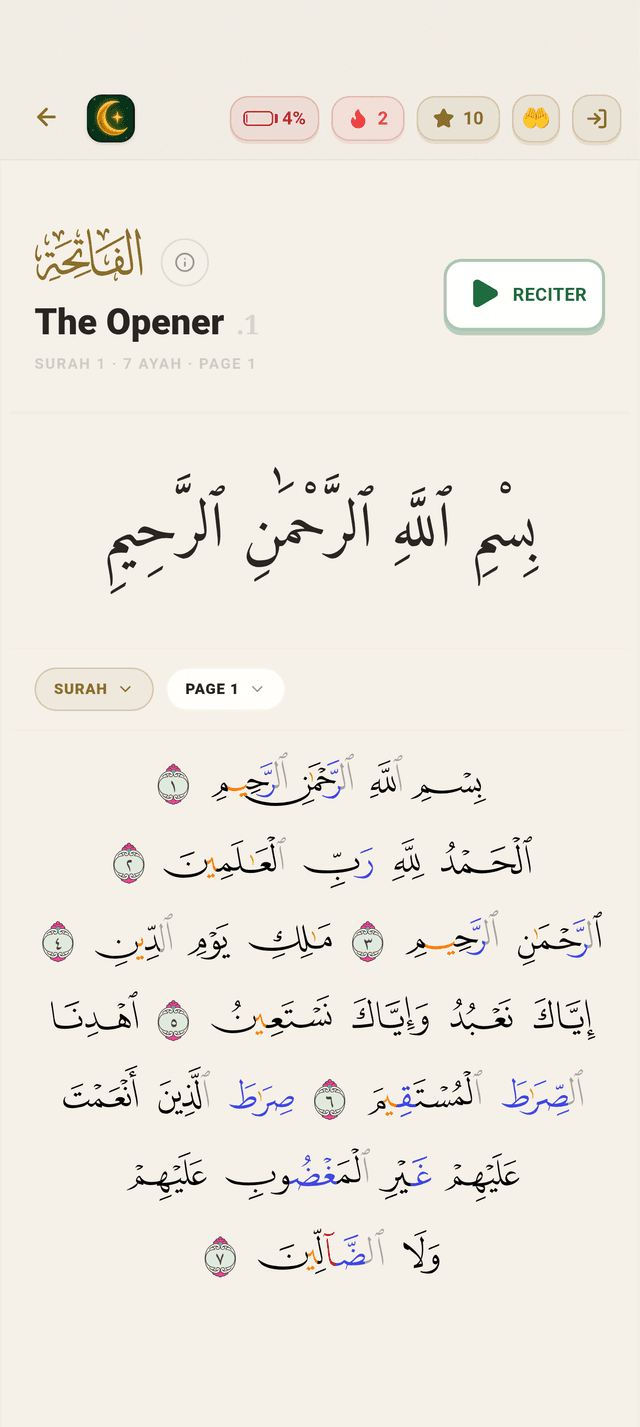 4%
2
10
الفَاتِحَة
The Opener .1
RECITER
SURAH 1 · 7 AYAH · PAGE 1
بِسْمِ ٱللَّهِ ٱلرَّحْمَٰنِ ٱلرَّحِيمِ
SURAH
PAGE 1
بِسْمِ ٱللَّهِ ٱلرَّحْمَٰنِ ٱلرَّحِيمِ ١
ٱلْحَمْدُ لِلَّهِ رَبِّ ٱلْعَـٰلَمِينَ ٢
ٱلرَّحْمَـٰنِ ٱلرَّحِيمِ ٣ مَـٰلِكِ يَوْمِ ٱلدِّينِ ٤
إِيَّاكَ نَعْبُدُ وَإِيَّاكَ نَسْتَعِينُ ٥ ٱهْدِنَا
ٱلصِّرَٰطَ ٱلْمُسْتَقِيمَ ٦ صِرَٰطَ ٱلَّذِينَ أَنْعَمْتَ
عَلَيْهِمْ غَيْرِ ٱلْمَغْضُوبِ عَلَيْهِمْ
وَلَا ٱلضَّآلِّينَ ٧